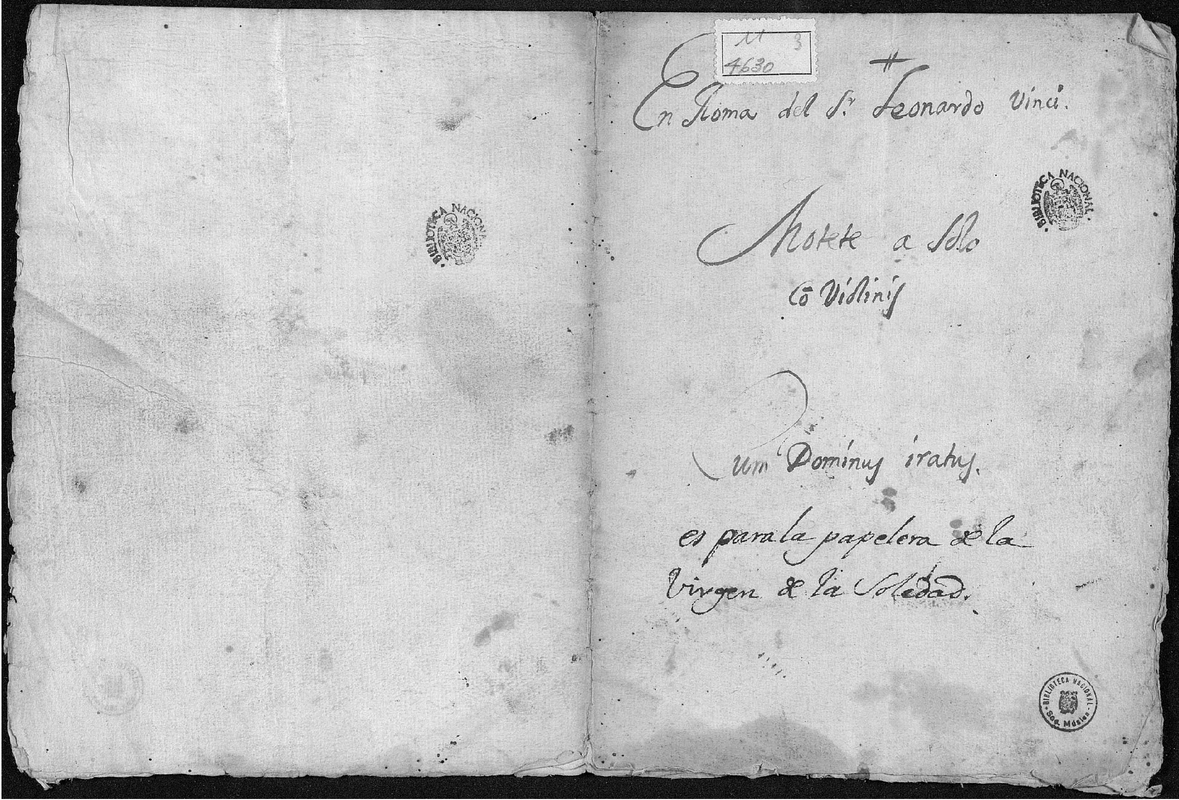 BIBLIOTECA NACIONAL
M 3
4630
En Roma del Sr Leonardo Vinci.
BIBLIOTECA NACIONAL
Motete a Solo
Cō Violinis
Cum Dominus iratus.
es para la papelera de la
Virgen de la Soledad.
BIBLIOTECA NACIONAL
Sec. Música